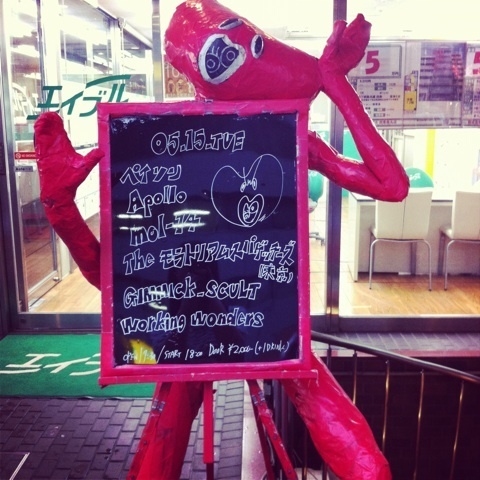 エイブル
5
05.15.TUE
ペイソン
Apollo
mol-74
The モラトリアムスパゲッチーズ
(東京)
GIMMICK_SCULT
Working Wonders
START 18:00 Door ¥2,000- (+1Drink)
エイブル